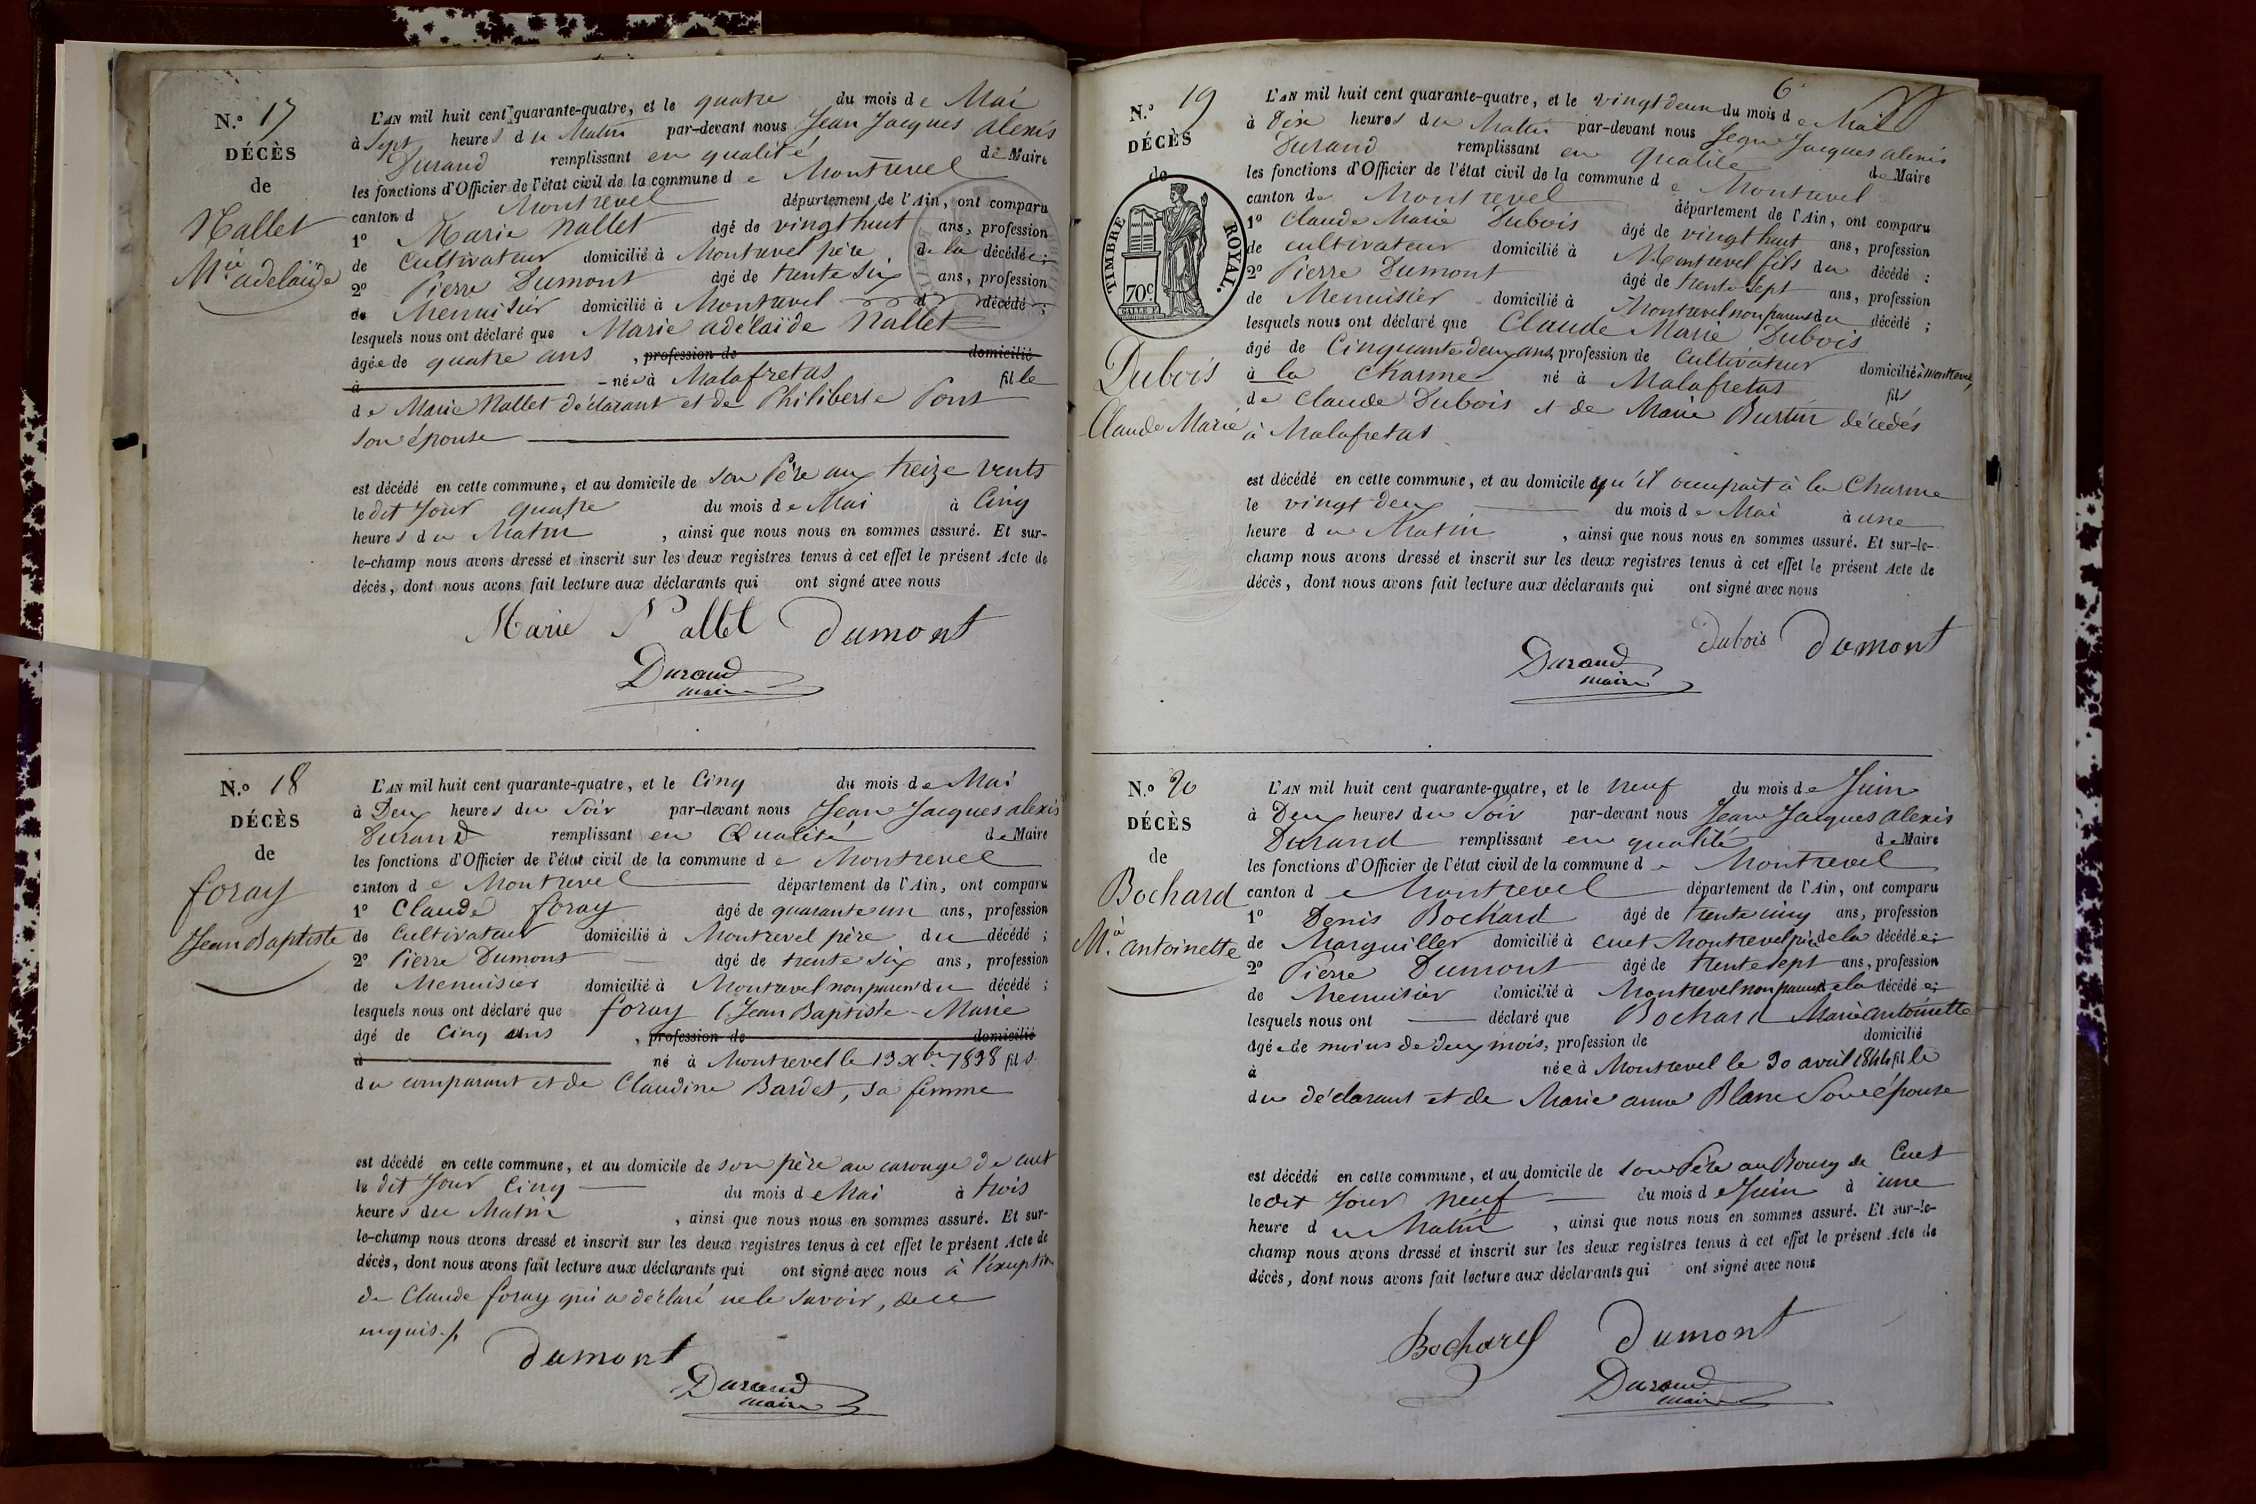 N.o 17
DÉCÈS
de
Nallet
M.ie adelaïde
L'AN mil huit cent quarante-quatre, et le quatre du mois de Mai
à Sept heures du Matin par-devant nous Jean Jacques alexis
Durand remplissant en qualité de Maire
les fonctions d'Officier de l'état civil de la commune de Montrevel
canton d Montrevel département de l'Ain, ont comparu
1o Marie Nallet âgé de vingt huit ans, profession
de Cultivateur domicilié à Montrevel père de la décédée ;
2o Pierre Dumont âgé de trente six ans, profession
de Menuisier domicilié à Montrevel d décédé ;
lesquels nous ont déclaré que Marie adelaïde Nallet
âgée de quatre ans , profession de domicilié
à née à Malafretas fille
de Marie Nallet déclarant et de Philiberte Pont
son épouse
est décédé en cette commune, et au domicile de son Père aux treize vents
le dit Jour quatre du mois de Mai à Cinq
heures du Matin , ainsi que nous nous en sommes assuré. Et sur-
le-champ nous avons dressé et inscrit sur les deux registres tenus à cet effet le présent Acte de
décès, dont nous avons fait lecture aux déclarants qui ont signé avec nous
Marie Nallet Dumont
Durand
maire
N.o 18
DÉCÈS
de
foray
Jean Baptiste
L'AN mil huit cent quarante-quatre, et le Cinq du mois de Mai
à Deux heures du Soir par-devant nous Jean Jacques alexis
Durand remplissant en Qualité de Maire
les fonctions d'Officier de l'état civil de la commune de Montrevel
canton de Montrevel département de l'Ain, ont comparu
1o Claude foray âgé de quarante un ans, profession
de Cultivateur domicilié à Montrevel père du décédé ;
2o Pierre Dumont âgé de trente six ans, profession
de Menuisier domicilié à Montrevel non parent du décédé ;
lesquels nous ont déclaré que foray Jean Baptiste Marie
âgé de Cinq ans , profession de domicilié
à né à Montrevel le 13 Xbre 1838 fils
du comparant et de Claudine Bardet, sa femme
est décédé en cette commune, et au domicile de son père au carouge de cuet
le dit Jour Cinq du mois de Mai à trois
heures du Matin , ainsi que nous nous en sommes assuré. Et sur-
le-champ nous avons dressé et inscrit sur les deux registres tenus à cet effet le présent Acte de
décès, dont nous avons fait lecture aux déclarants qui ont signé avec nous à l'exuption
de Claude foray qui a déclaré ne le savoir, de ce
enquis.
Dumont
Durand
maire
6
N.o 19
DÉCÈS
de
TIMBRE ROYAL.
70c
Dubois
Claude Marie
L'AN mil huit cent quarante-quatre, et le vingt deux du mois de Mai
à Dix heures du Matin par-devant nous Jean Jacques alexis
Durand remplissant en Qualité de Maire
les fonctions d'Officier de l'état civil de la commune de Montrevel
canton de Montrevel département de l'Ain, ont comparu
1o Claude Marie Dubois âgé de vingt huit ans, profession
de cultivateur domicilié à Montrevel fils du décédé ;
2o Pierre Dumont âgé de trente sept ans, profession
de Menuisier domicilié à Montrevel non parent du décédé ;
lesquels nous ont déclaré que Claude Marie Dubois
âgé de Cinquante deux ans, profession de Cultivateur domicilié à montrevel
à la Charme né à Malafretas fils
de Claude Dubois et de Marie Burtin décédés
à Malafretas
est décédé en cette commune, et au domicile qu'il occupait à la Charme
le vingt deux du mois de Mai à une
heure du Matin , ainsi que nous nous en sommes assuré. Et sur-le-
champ nous avons dressé et inscrit sur les deux registres tenus à cet effet le présent Acte de
décès, dont nous avons fait lecture aux déclarants qui ont signé avec nous
Dubois Dumont
Durand
maire
N.o 20
DÉCÈS
de
Bochard
M.a antoinette
L'AN mil huit cent quarante-quatre, et le neuf du mois de Juin
à Deux heures du Soir par-devant nous Jean Jacques alexis
Durand remplissant en qualité de Maire
les fonctions d'Officier de l'état civil de la commune de Montrevel
canton de Montrevel département de l'Ain, ont comparu
1o Denis Bochard âgé de trente cinq ans, profession
de Marguiller domicilié à cuet Montrevel père de la décédée ;
2o Pierre Dumont âgé de trente sept ans, profession
de Menuisier domicilié à Montrevel non parent de la décédée ;
lesquels nous ont déclaré que Bochard Marie antoinette
âgée de moins de deux mois, profession de domicilié
à née à Montrevel le 30 avril 1844 fille
du déclarant et de Marie anne Blanc Son épouse
est décédé en cette commune, et au domicile de son Père au Bourg de Cuet
le dit Jour neuf du mois de Juin à une
heure du Matin , ainsi que nous nous en sommes assuré. Et sur-le-
champ nous avons dressé et inscrit sur les deux registres tenus à cet effet le présent Acte de
décès, dont nous avons fait lecture aux déclarants qui ont signé avec nous
Bochard Dumont
Durand
maire